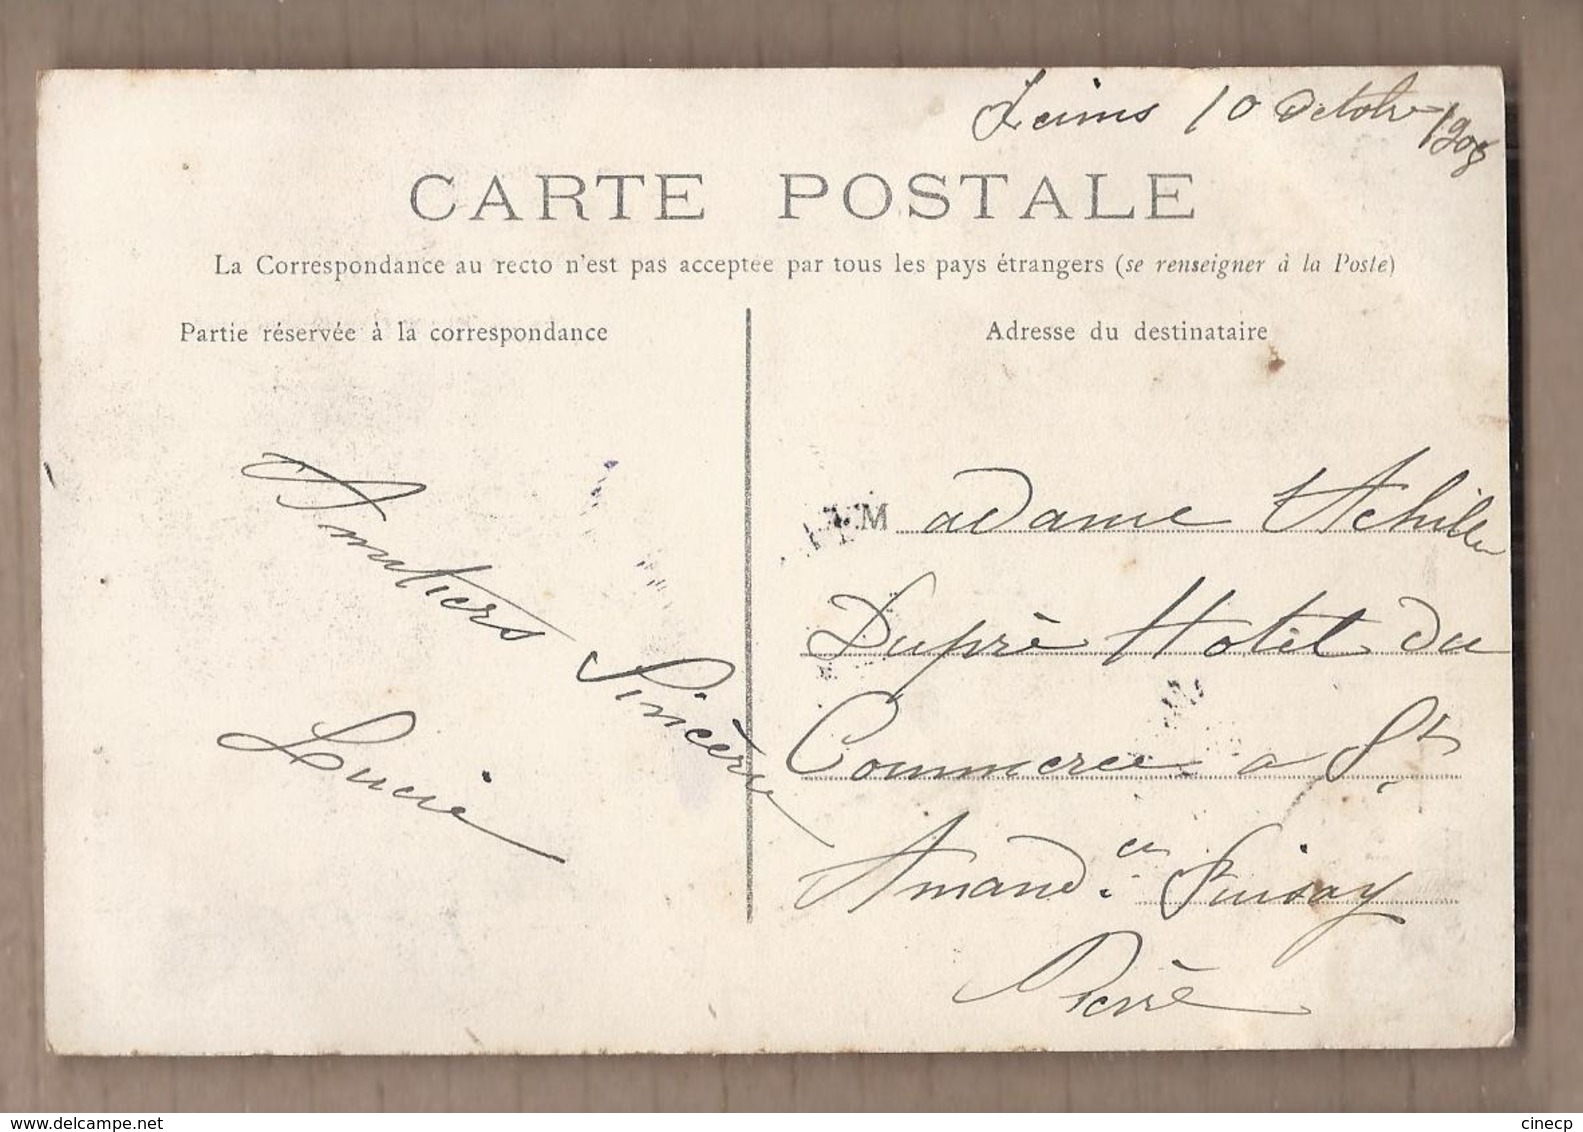 Reims 10 Octobre 1905
CARTE POSTALE
La Correspondance au recto n'est pas acceptée par tous les pays étrangers (se renseigner à la Poste)
Partie réservée à la correspondance
Adresse du destinataire
Amitiers Sincère
Lucie
M adame Achille
Duprè Hotel du
Commerce a St
Amand en Puisay
Nievre
delcampe.net
cinecp